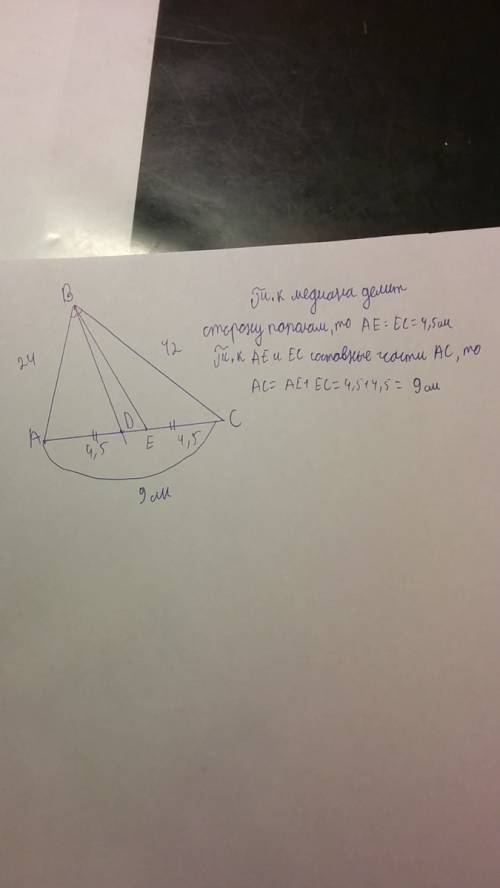 B
24
42
A
D
E
C
4,5
4,5
9 см
Т.к медиана делит
сторону пополам, то AE = EC = 4,5см
Т.к AE и EC составные части AC, то
AC = AE + EC = 4,5 + 4,5 = 9 см